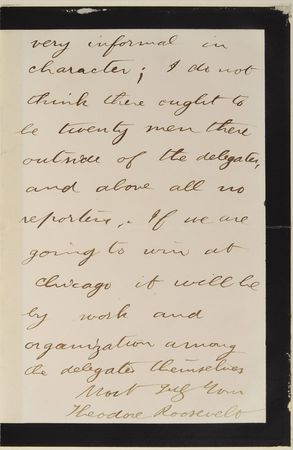 very informal in
character; I do not
think there ought to
be twenty men there
outside of the delegates,
and above all no
reporters. If we are
going to win at
Chicago it will be
by work and
organization among
the delegates themselves
Most Truly Yours
Theodore Roosevelt